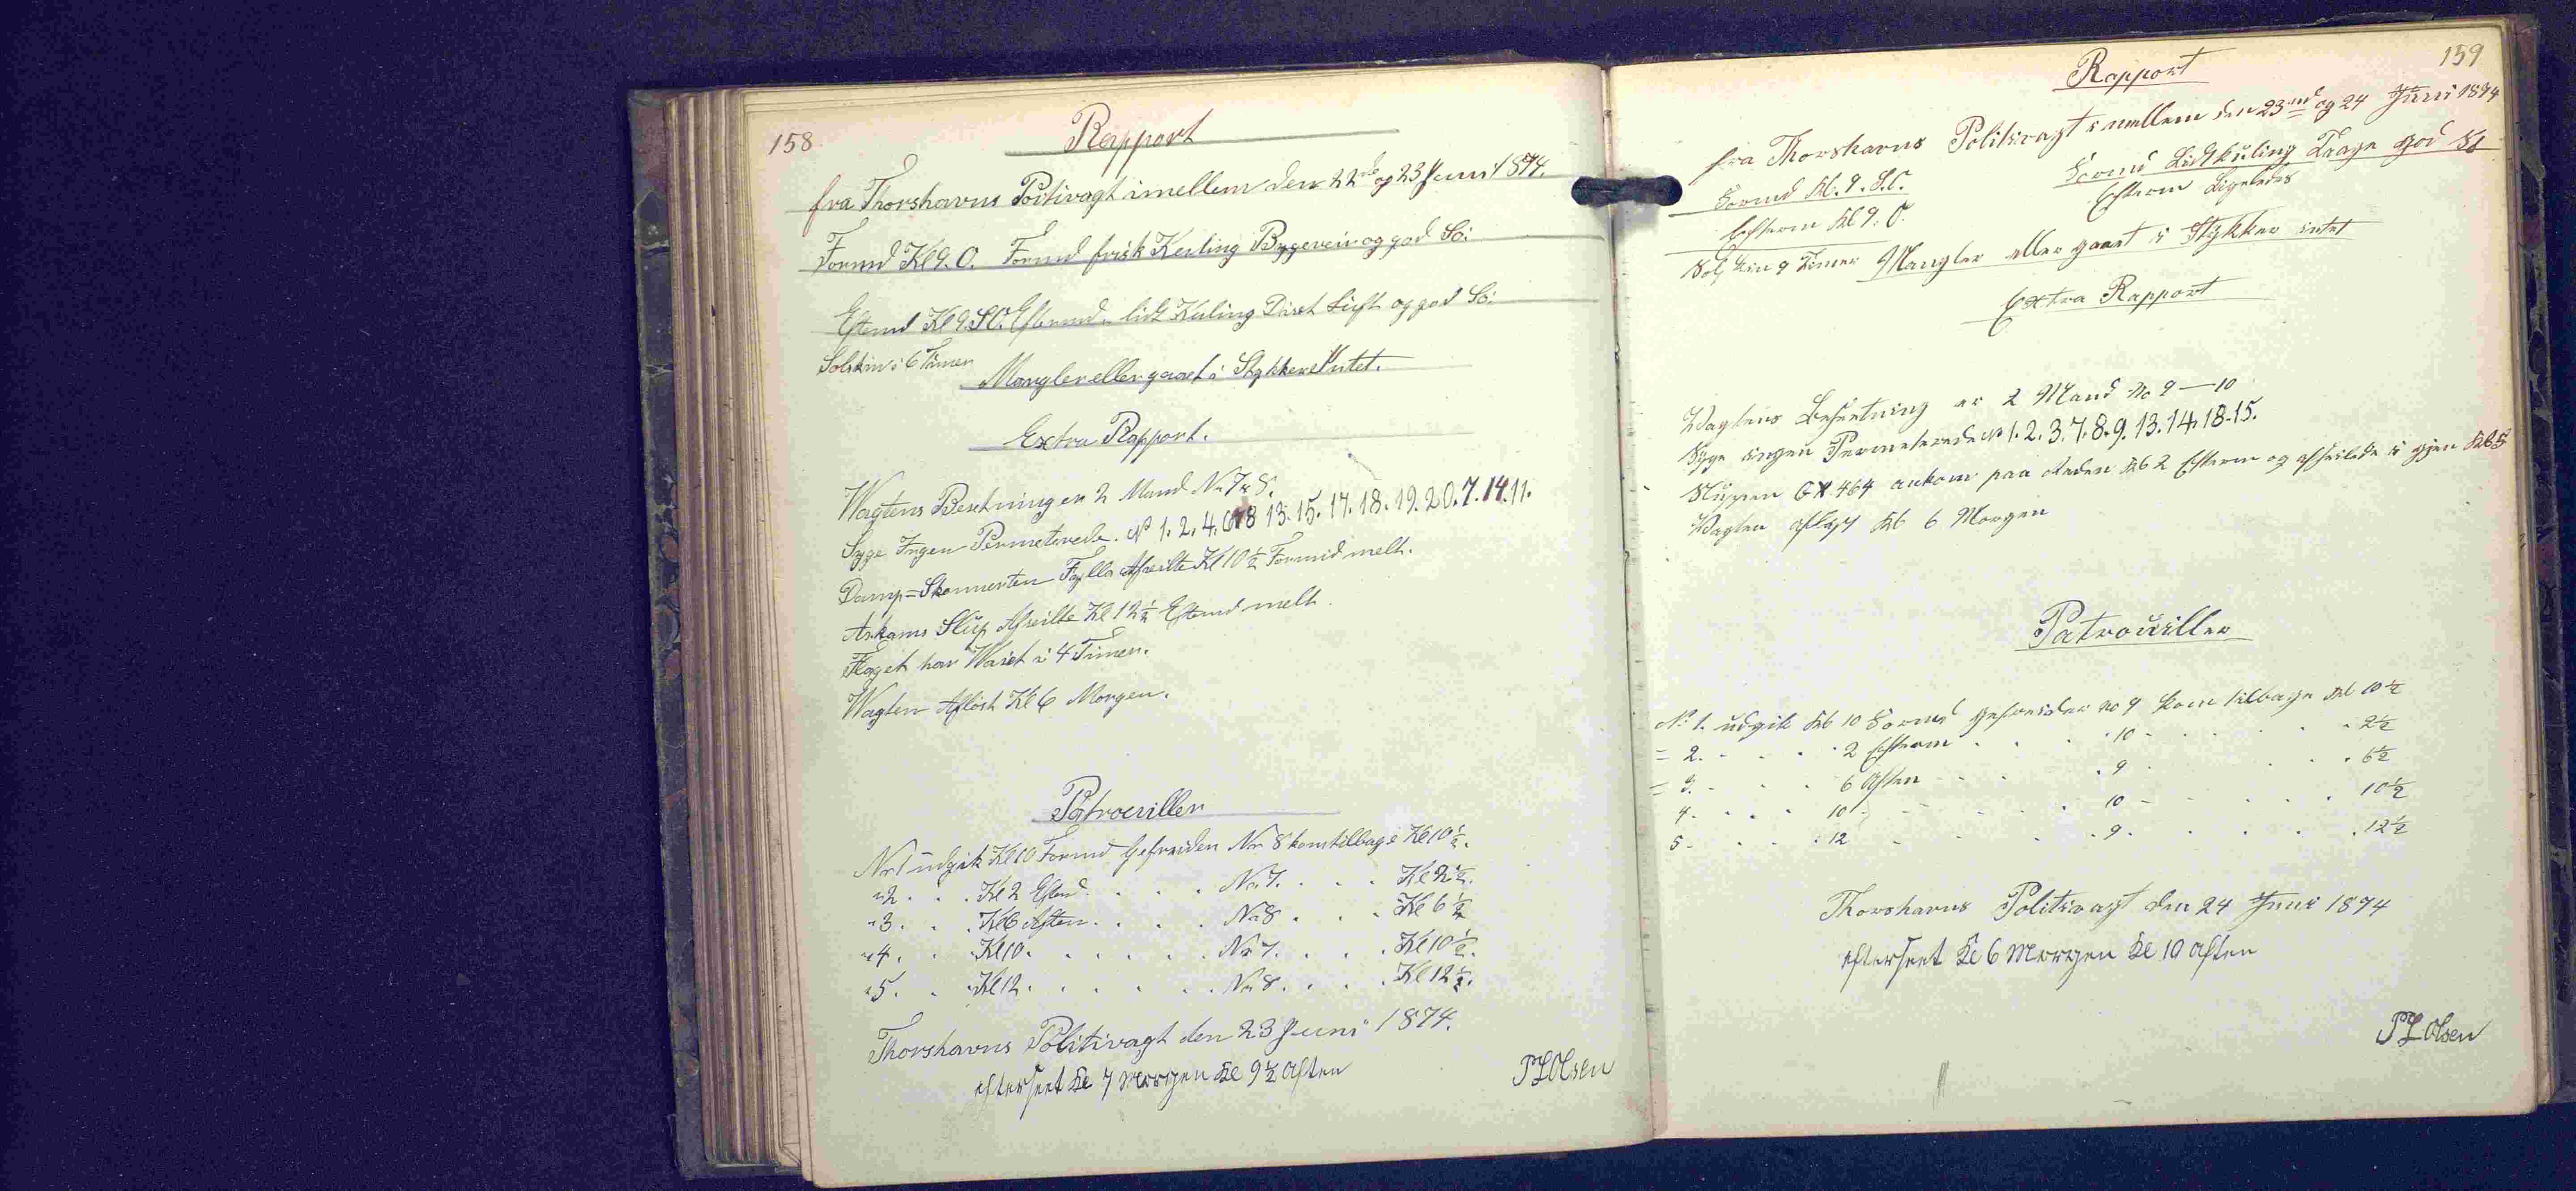 158
Rapport
fra Thorshavns Politivagt imellem den 22de og 23 Juni 1874.
Formd Kl 9. O. Formd frisk Keuling Bygeveir og god Sö:
Eftmd Kl 9. SO. Eftermd. lidt Kuling Diset Luft og god Sö:
Solskin i 6 Timer
Mangler eller gaaet i Stykker Intet.
Extra Rapport.
Wagtens Besetning er 2 Mand No 7 & 8.
Syge Ingen Permeterede. No 1. 2. 4. 6 8 13. 15. 17. 18. 19. 20. 7. 14. 11.
Damp=Skonnerten Fylla Afseilte Kl 10½ Formid melt.
Slup Afseilte Kl 12½ Eftmd melt.
Flaget har Waiet i 4 Timer.
Wagten Aflöst Kl 6 Morgen.
Patrouiller
Nr 1 udgik Kl 10 Formd Gefreiden No 8 kom tilbage Kl 10½.
" 2 . . . Kl 2 Eftmd . . . . No 7. . . . Kl 2½.
" 3. . . Kl 6 Aften . . . . No 8 . . . Kl 6½
" 4. . . Kl 10. . . . . . No 7. . . . Kl 10½.
" 5. . . Kl 12. . . . . . No 8. . . . Kl 12½.
Thorshavns Politivagt den 23 Juni 1874.
efterseet Kl 7 Morgen Kl 9½ Aften
PLOlsen
159
Rapport
fra Thorshavns Politivagt i mellem den 23nd og 24 Juni 1874
Formd Kl. 9. S.O. Formd Lidt kuling Taage god Sö
Efterm Kl 9. O. Efterm Ligeledes
Solskin 9 Timer Mangler eller gaaet i Stykker intet
Extra Rapport
Wagtens Besætning er 2 Mand No 9 — 10
Syge ingen Permeterede No 1. 2. 3. 7. 8. 9. 13. 14. 18. 15.
Sluppen GX 464 ankom paa Reden Kl 2 Efterm og afseilede i gjen Kl 5
Wagten afløst Kl 6 Morgen
Patrouiller
No 1. udgik Kl 10 Formd gefreider No 9 kom tilbage Kl 10½
= 2. - . . . 2 Efterm . . . 10 - . . . . 2½
= 3. - . . . 6 Aften - . . . 9 . . . . 6½
4. . . . 10 - . . . . 10 - . . . 10½
5 - . . . 12 - . . . 9. . . . . 12½
Thorshavns Politivagt den 24 Juni 1874
efterseet Kl 6 Morgen Kl 10 Aften
PLOlsen